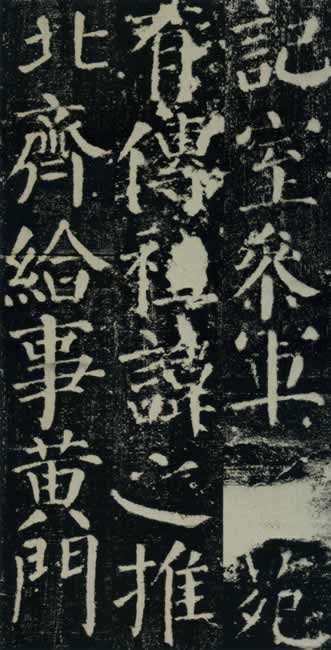 記室參軍苑
有傳祖諱之推
北齊給事黄門